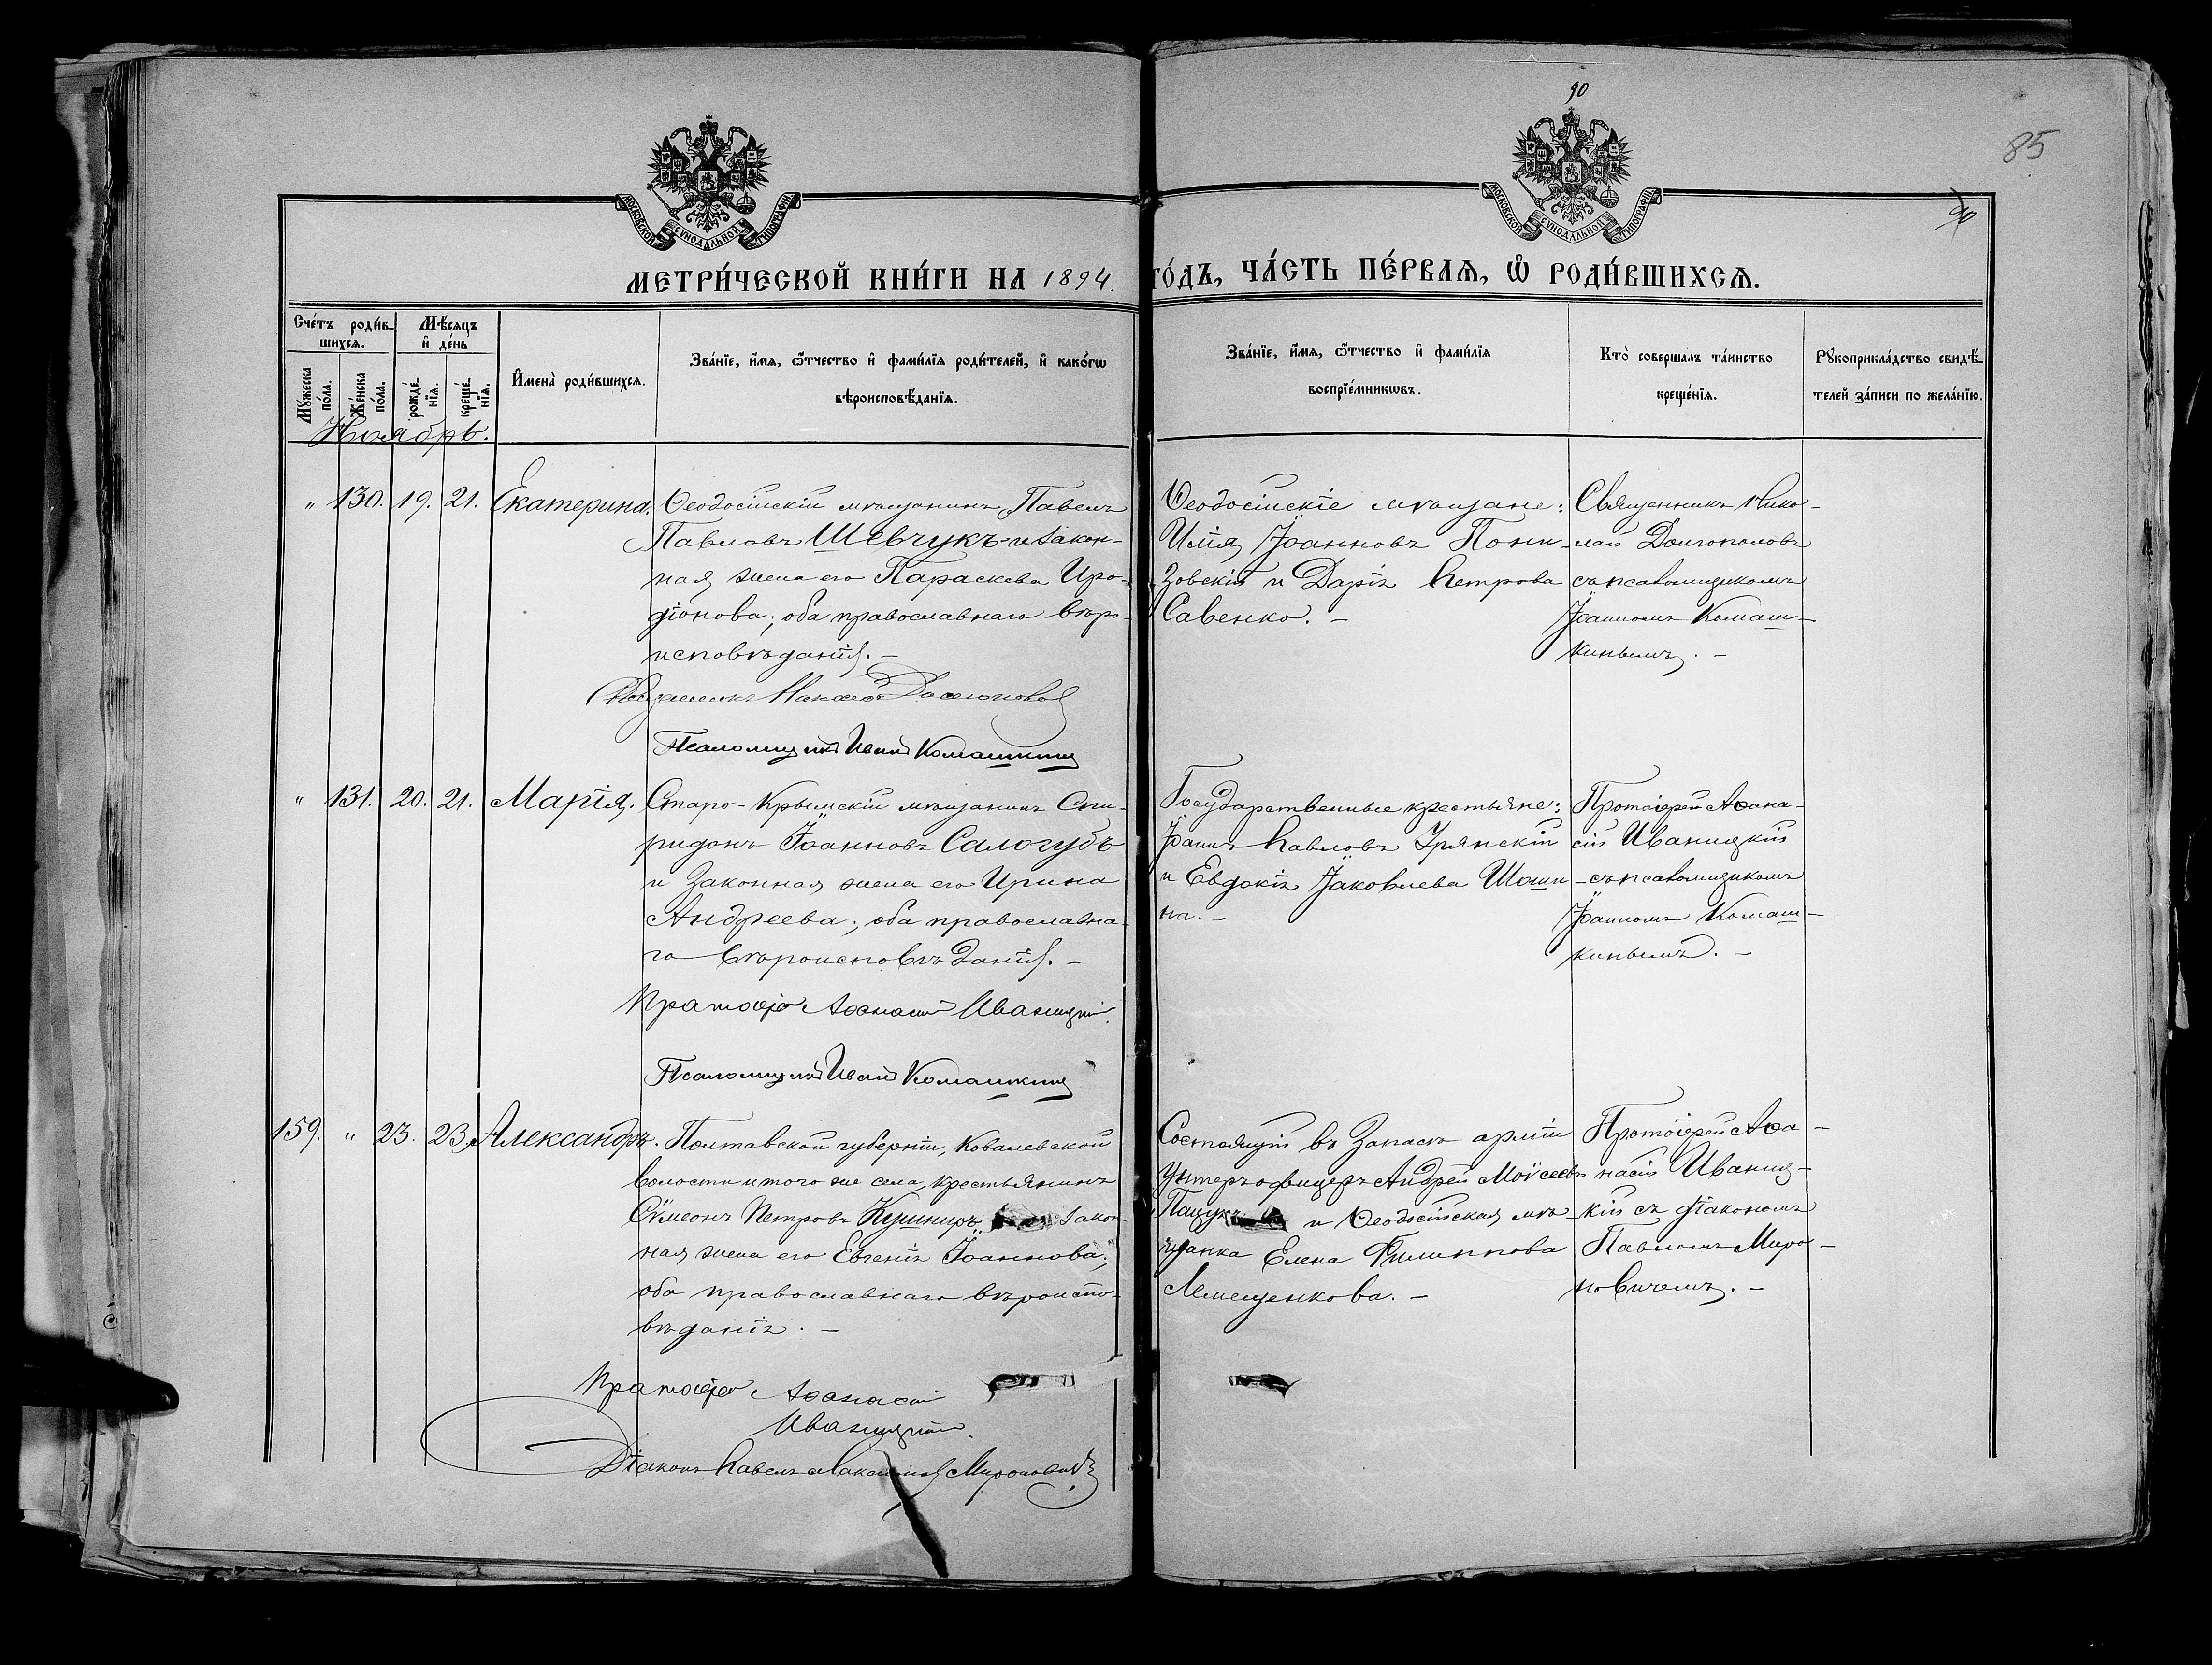 90
85
90
МОСКОВСКОЙ СѴНОДАЛЬНОЙ ТИПОГРАФІИ
МОСКОВСКОЙ СѴНОДАЛЬНОЙ ТИПОГРАФІИ
МЕТРИ́ЧЕСКОЙ КНИ́ГИ НА 1894. ГО́ДЪ, ЧА́СТЬ ПЕ́РВАѦ, Ѡ҆ РОДИ́ВШИХСѦ.
Счéтъ роди́в-
шихсѧ.
Мꙋ́жеска по́ла.
Же́нска по́ла.
Мѣ́сѧцъ
и҆ де́нь
рожде́-нїѧ.
креще́-нїѧ.
И҆мена̀ роди́вшихсѧ.
Зва́нїе, и҆́мѧ, ѻ҆́тчество и҆ фами́лїѧ роди́телей, и҆ како́гѡ
вѣроисповѣ́данїѧ.
Зва́нїе, и҆́мѧ, ѻ҆́тчество и҆ фами́лїѧ
воспрїе́мникѡвъ.
Кто̀ соверша́лъ та́инство
креще́нїѧ.
Рꙋкоприкла́дство свидѣ́-
телей за́писи по жела́нїю.
Ноябрь.
" 130. 19. 21. Екатерина.
Ѳеодосійскій мѣщанинъ Павелъ
Павловъ Шевчукъ и закон-
ная жена его Параскева Иро-
діонова; оба православнаго вѣро-
исповѣданія. –
Священникъ Николай Долгополовъ
Псаломщикъ Иванъ Комашкинъ
Ѳеодосійскіе мѣщане:
Илія Іоанновъ Пони-
зовскій и Дарія Петрова
Савенко. –
Священникъ Нико-
лай Долгополовъ
съ псаломщикомъ
Іоанномъ Комаш-
кинымъ. –
" 131. 20. 21. Марія.
Старо-Крымскій мѣщанинъ Спи-
ридонъ Іоанновъ Салогубъ
и законная жена его Ирина
Андреева; оба православна-
го вѣроисповѣданія. –
Протоіерей Аѳанасій Иваницкій.
Псаломщикъ Иванъ Комашкинъ
Государственные крестьяне:
Іоаннъ Павловъ Урянскій
и Евдокія Іаковлева Шоши-
на. –
Протоіерей Аѳана-
сій Иваницкій
съ псаломщикомъ
Іоанномъ Комаш-
кинымъ. –
159. " 23. 23. Александръ.
Полтавской губерніи, Ковалевской
волости и того же села, крестьянинъ
Сѵмеонъ Петровъ Кушниръ, закон-
ная жена его Евгенія Іоаннова;
оба православнаго вѣроиспо-
вѣданія. –
Протоіерей Аѳанасій
Иваницкій.
Діаконъ Павелъ Мироновичъ
Состоящій въ запасѣ арміи
унтеръ офицеръ Андрей Моѵсеевъ
Пацукъ и Ѳеодосійская мѣ-
щанка Елена Филиппова
Лемещенкова. –
Протоіерей Аѳа-
насій Иваниц-
кій съ діакономъ
Павломъ Миро-
новичемъ. –